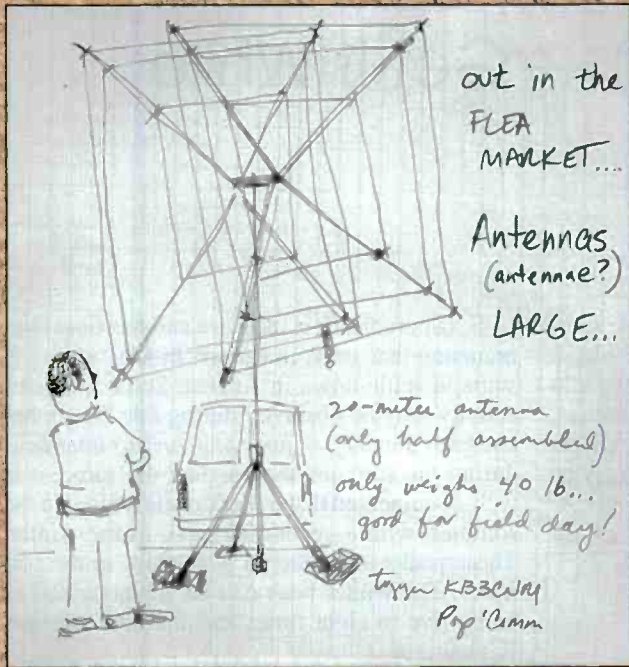 out in the
FLEA
MARKET...
Antennas
(antennae?)
LARGE...
20-meter antenna
(only half assembled)
only weighs 40 lb...
good for field day!
Pop'Comm